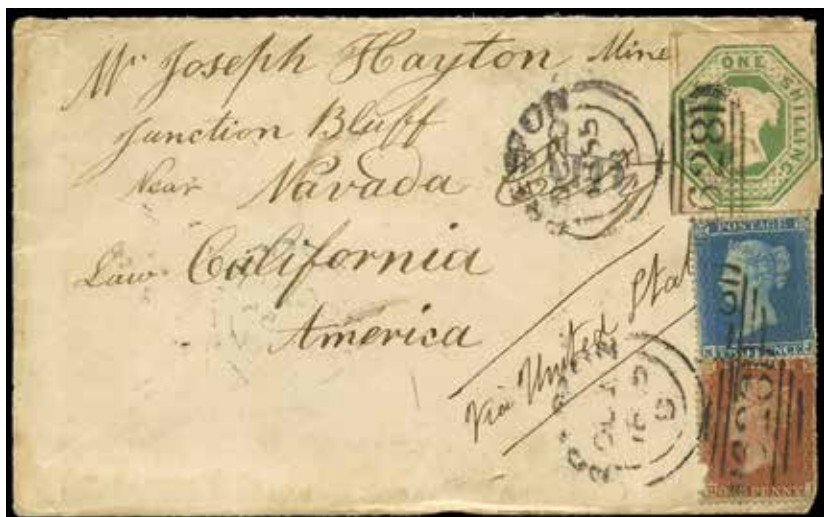 Mr Joseph Hayton Mine
Junction Bluff
Near Navada
Law California
America
Via United Stat
ONE SHILLING
628
POSTAGE
628